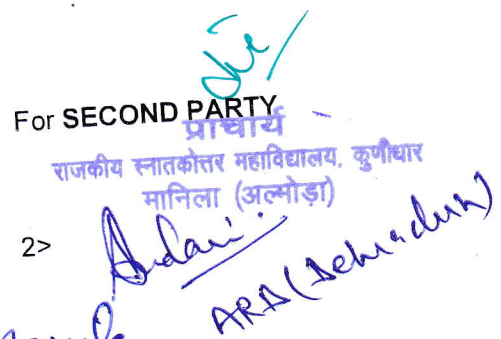 For SECOND PARTY
प्राचार्य
राजकीय स्नातकोत्तर महाविद्यालय, कुणीधार
मानिला (अल्मोड़ा)
2>
ARD (Dehradun)